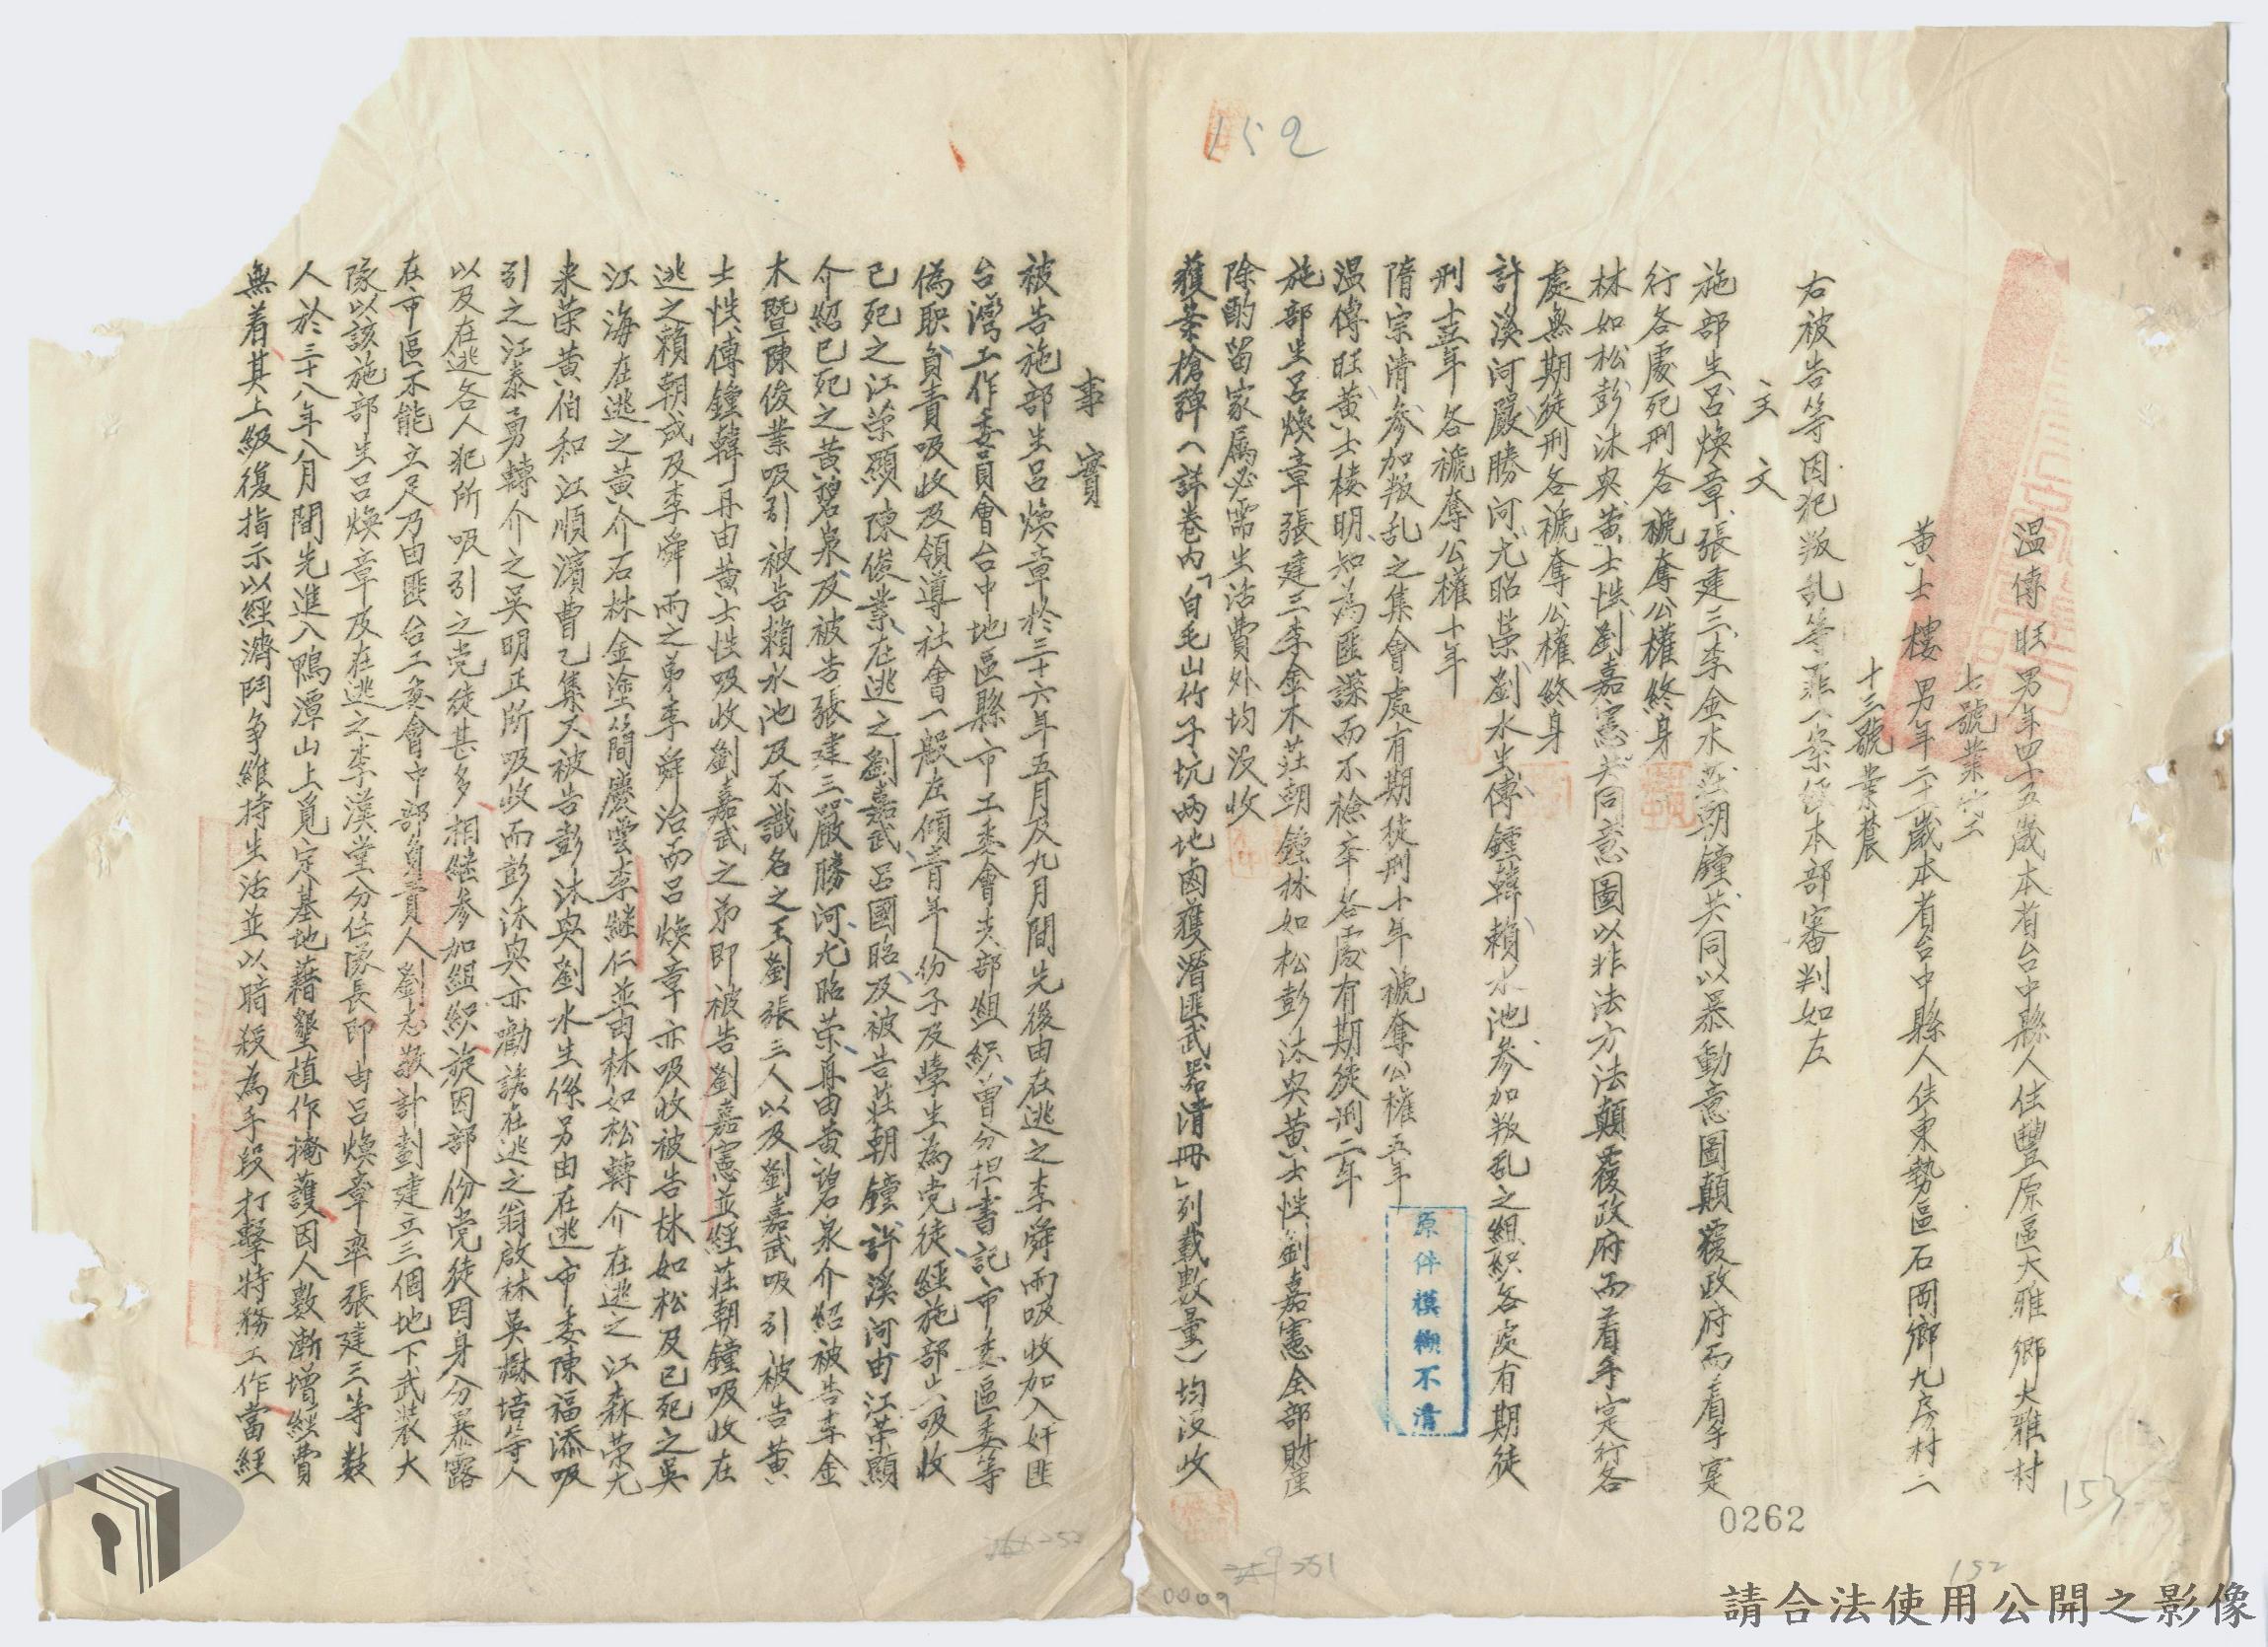 152
温傳旺男年四十五歲本省台中縣人住豐原區大雅鄉大雅村
七號業
黃士樓男年二十二歲本省台中縣人住東勢區石岡鄉九房村二
十三號業農
右被告等因犯叛乱等罪一案經本部審判如左
主文
施部生呂煥章張建三李金木莊朝鐘共同以暴動意圖顛覆政府而着手寔
行各處死刑各褫奪公權終身
林如松彭沐興黃士性劉嘉憲共同意圖以非法方法顛覆政府而着手寔行各
處無期徒刑各褫奪公權終身
許溪河嚴勝河尤昭榮劉水生傅鐘韓賴水池參加叛乱之組織各處有期徒
刑十五年各褫奪公權十年
隋宗清參加叛乱之集會處有期徒刑十年褫奪公權五年
温傳旺黃士樓明知為匪諜而不檢舉各處有期徒刑二年
施部生呂煥章張建三李金木莊朝鐘林如松彭沐興黃士性劉嘉憲全部財產
除酌留家屬必需生活費外均沒收
獲案槍彈(詳卷內「白毛山竹子坑兩地鹵獲潛匪武器清冊」列載數量)均沒收
事實
被告施部生呂煥章於三十六年五月及九月間先後由在逃之李舜雨吸收加入奸匪
台灣工作委員會台中地區縣市工委會支部組織曾分担書記市委區委等
偽职負責吸收及領導社會一般左傾青年份子及學生為党徒經施部生吸收
已死之江榮顯陳俊業在逃之劉嘉武呂國昭及被告莊朝鐘許溪河由江榮顯
介紹已死之黃碧泉及被告張建三嚴勝河尤昭榮再由黃碧泉介紹被告李金
木暨陳俊業吸引被告賴水池及不識名之王劉張三人以及劉嘉武吸引被告黃
士性傅鐘韓再由黃士性吸收劉嘉武之弟即被告劉嘉憲並經莊朝鐘吸收在
逃之賴朝成及李舜雨之弟李舜治而呂煥章亦吸收被告林如松及已死之吳
江海在逃之黃介石林金塗簡慶雲李継仁並由林如松轉介在逃之江森榮尤
来荣黃伯和江順濱曹乙集又被告彭沐興劉水生係另由在逃市委陳福添吸
引之江泰勇轉介之吳明正所吸收而彭沐興亦勸誘在逃之翁啟林吳樹培等人
以及在逃各人犯所吸引之党徒甚多相继参加組織旋因部份党徒因身分暴露
在市區不能立足乃由匪台工委會中部負責人劉志敬計劃建立三個地下武裝大
隊以該施部生呂煥章及在逃之李漢堂分任隊長即由呂煥章率張建三等数
人於三十八年八月間先進入鴨潭山上覓定基地藉墾植作掩護因人數漸增経費
無着其上級復指示以經濟鬥争維持生活並以暗殺為手段打擊特務工作當經
原件模糊不清
0262
153
152
0009
請合法使用公開之影像